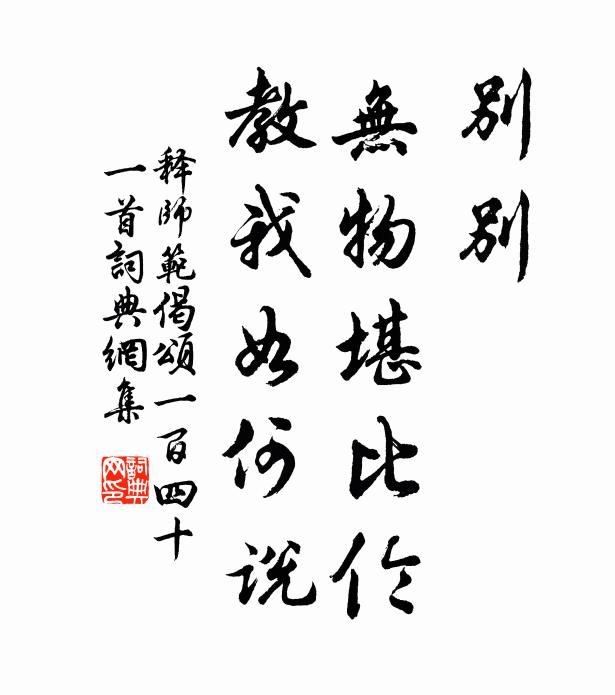 別別
無物堪比伦
教我如何説
释師範偈頌一百四十
一首詞典網集
詞典
网印